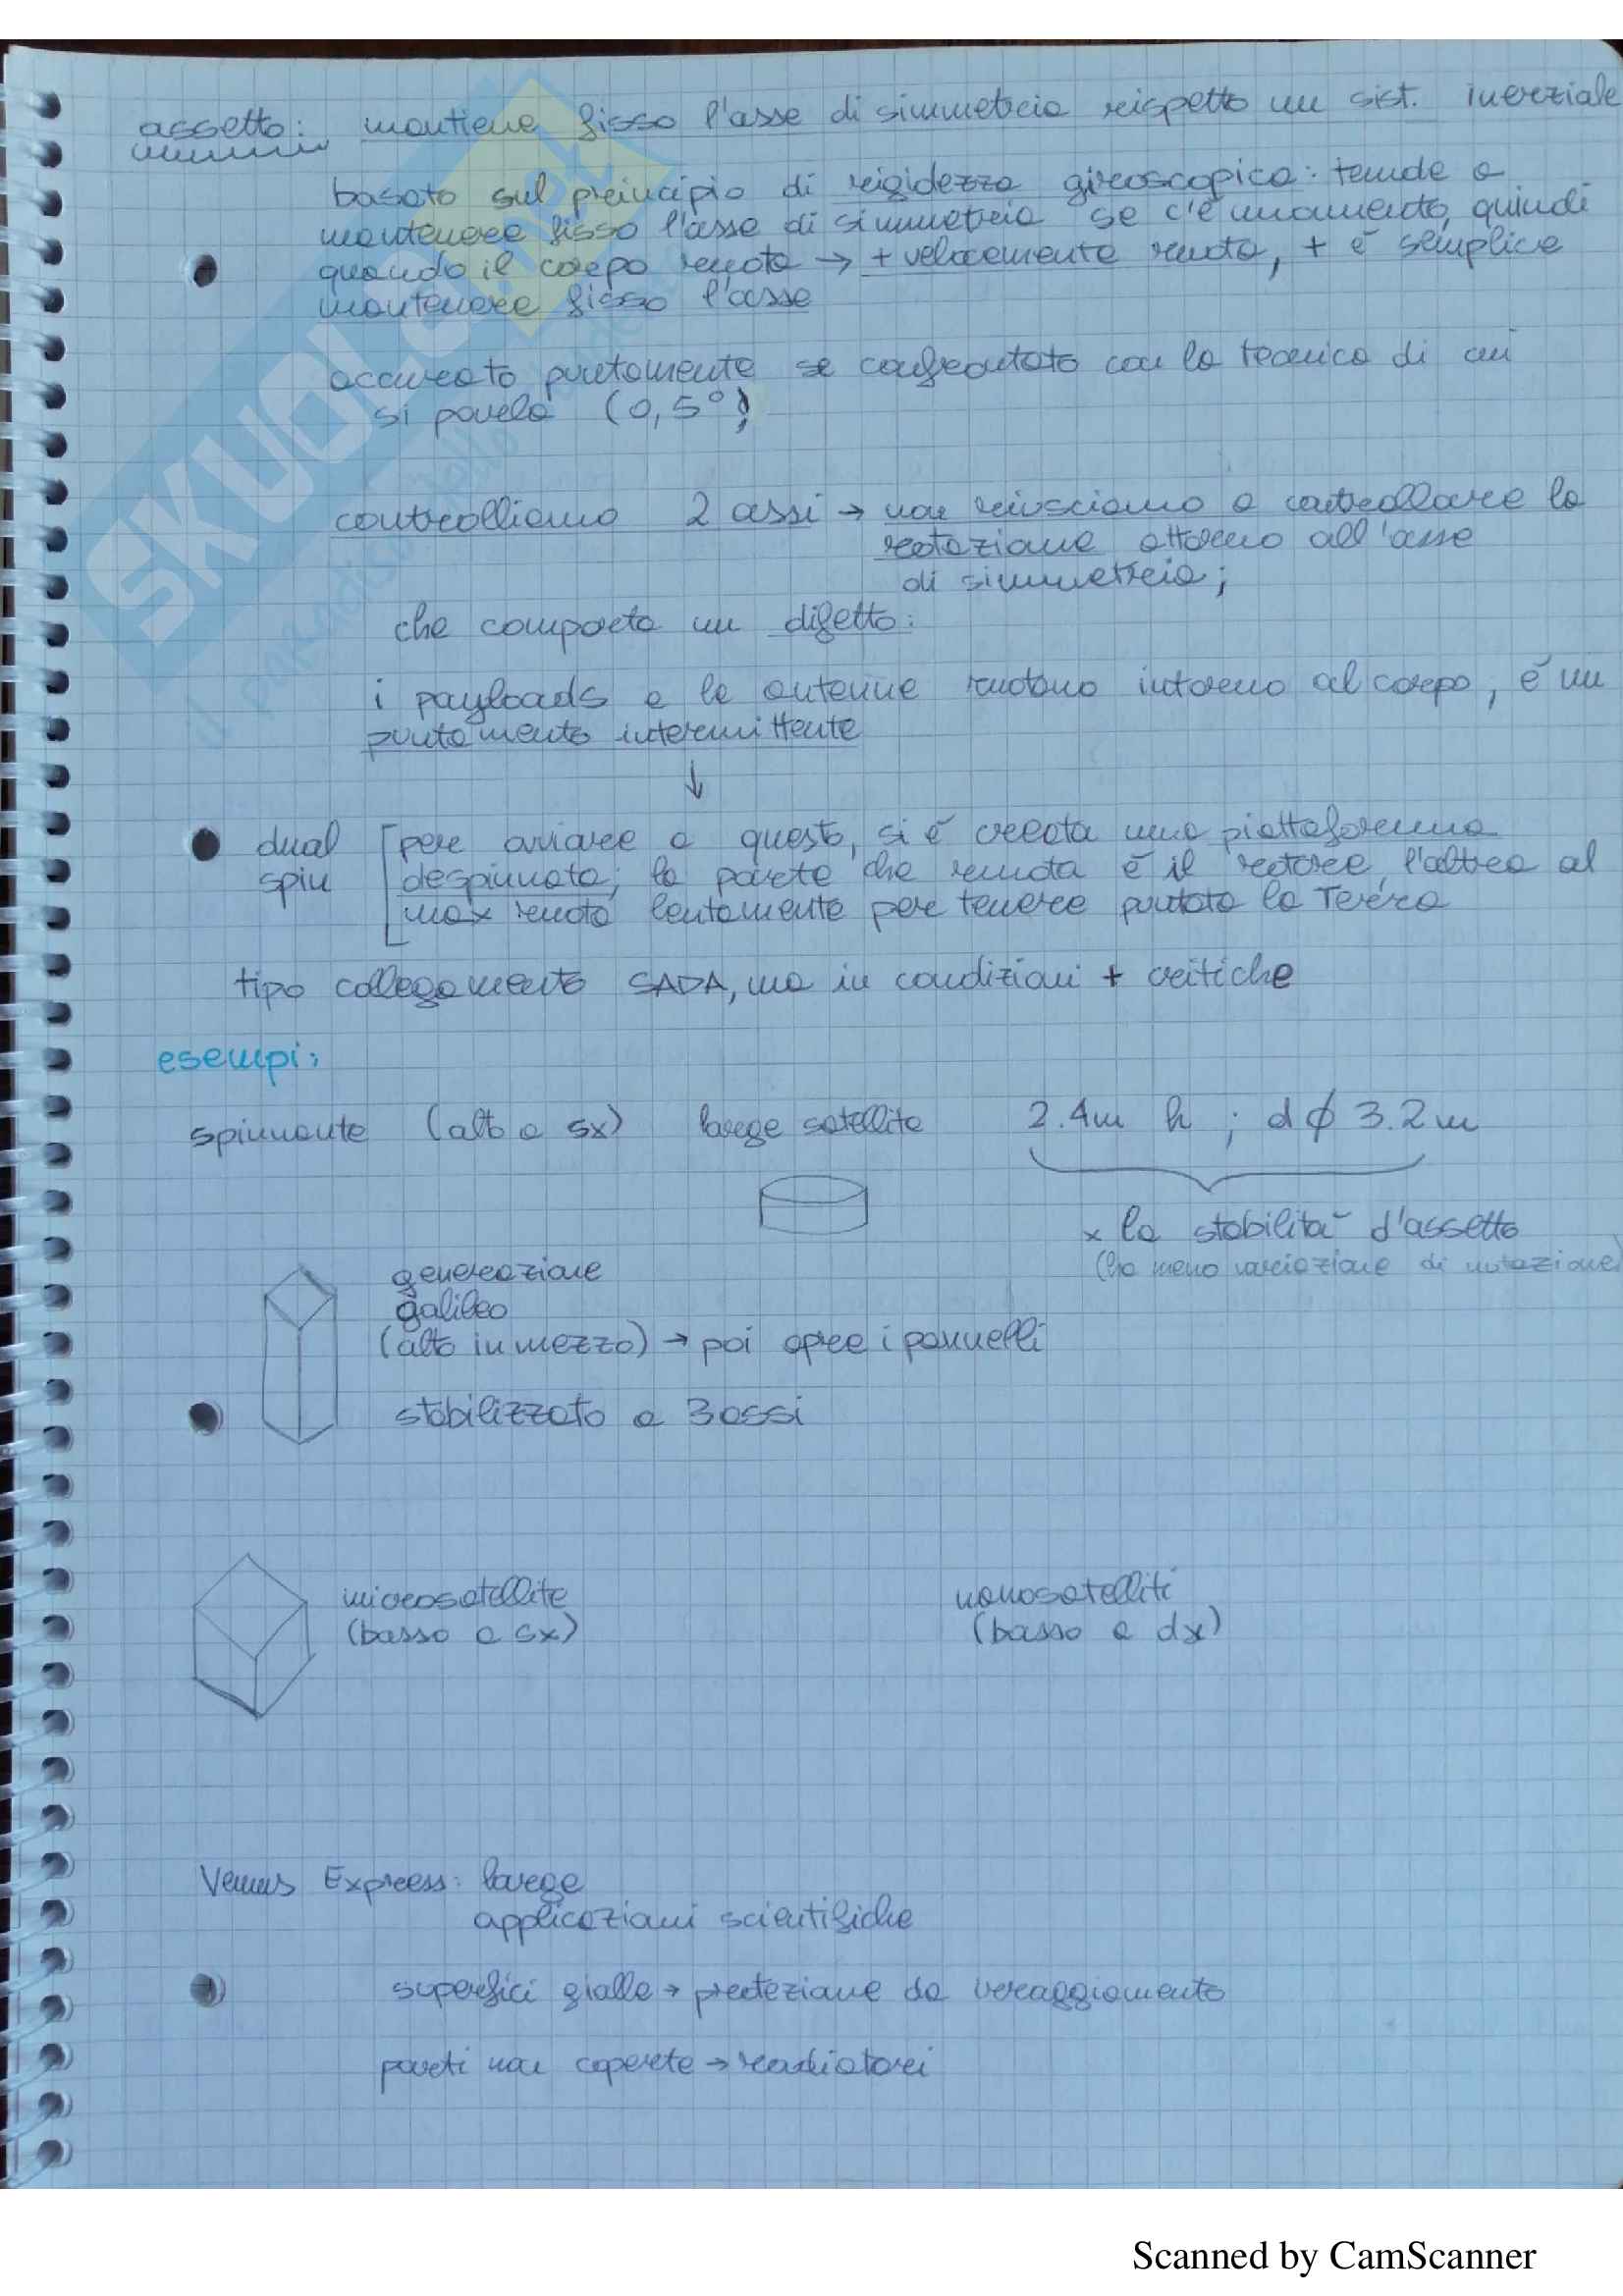 assetto: mantiene fisso l'asse di simmetria rispetto un sist. inerziale
basato sul principio di rigidezza giroscopica: tende a
mantenere fisso l'asse di simmetria se c'è momento, quindi
quando il corpo ruota → + velocemente ruota, + è semplice
mantenere fisso l'asse
accurato puntamente se confrontato con la tecnica di cui
si parla (0,5°)
controlliamo 2 assi → non riusciamo a controllare la
rotazione attorno all'asse
di simmetria;
che comporta un difetto:
i payloads e le antenne ruotano intorno al corpo, è un
puntamento intermittente
↓
dual spin
per ovviare a questo, si è creata una piattaforma
despinnata; la parte che ruota è il rotore, l'altra al
max ruota lentamente per tenere puntata la Terra
tipo collegamento SADA, ma in condizioni + critiche
esempi:
spinnante (alto a sx) large satellite 2.4m h ; d ϕ 3.2m
x la stabilità d'assetto
(ha meno variazione di nutazione)
generazione
galileo
(alto in mezzo) → poi apre i pannelli
stabilizzato a 3 assi
microsatellite
(basso a sx)
nanosatelliti
(basso a dx)
Venus Express: large
applicazioni scientifiche
superfici gialle → protezione da irraggiamento
parti non coperte → radiatori
SKUOLA.net
Scanned by CamScanner